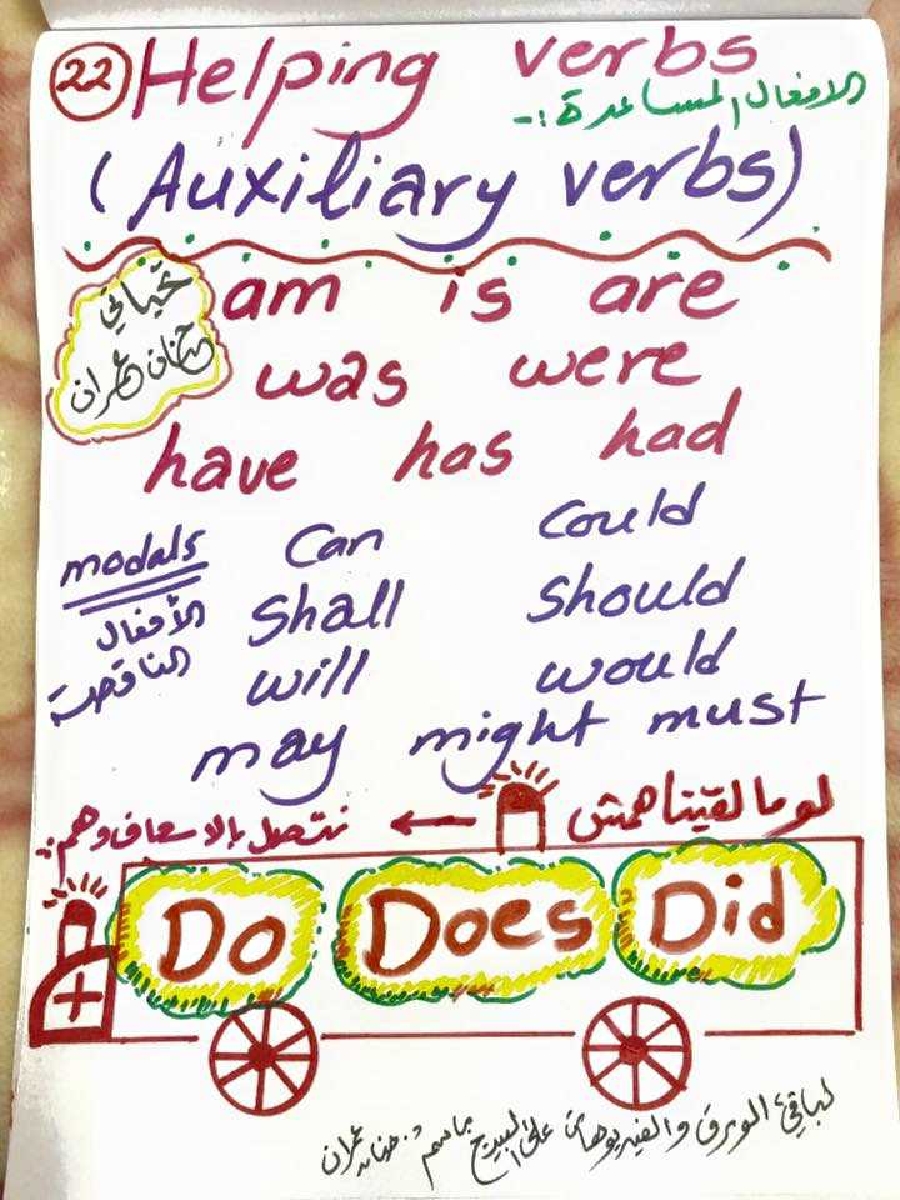 22 Helping verbs
الافعال المساعدة :-
(Auxiliary verbs)
تحياتي
حنان عمران
am is are
was were
have has had
modals
الأفعال
الناقصة
Can Could
Shall Should
will would
may might must
لو ما لقيناهمش ← نتصل بالاسعاف وهم :
Do Does Did
لباقي الورق والفيديوهات على البيدج باسم د. حنان عمران